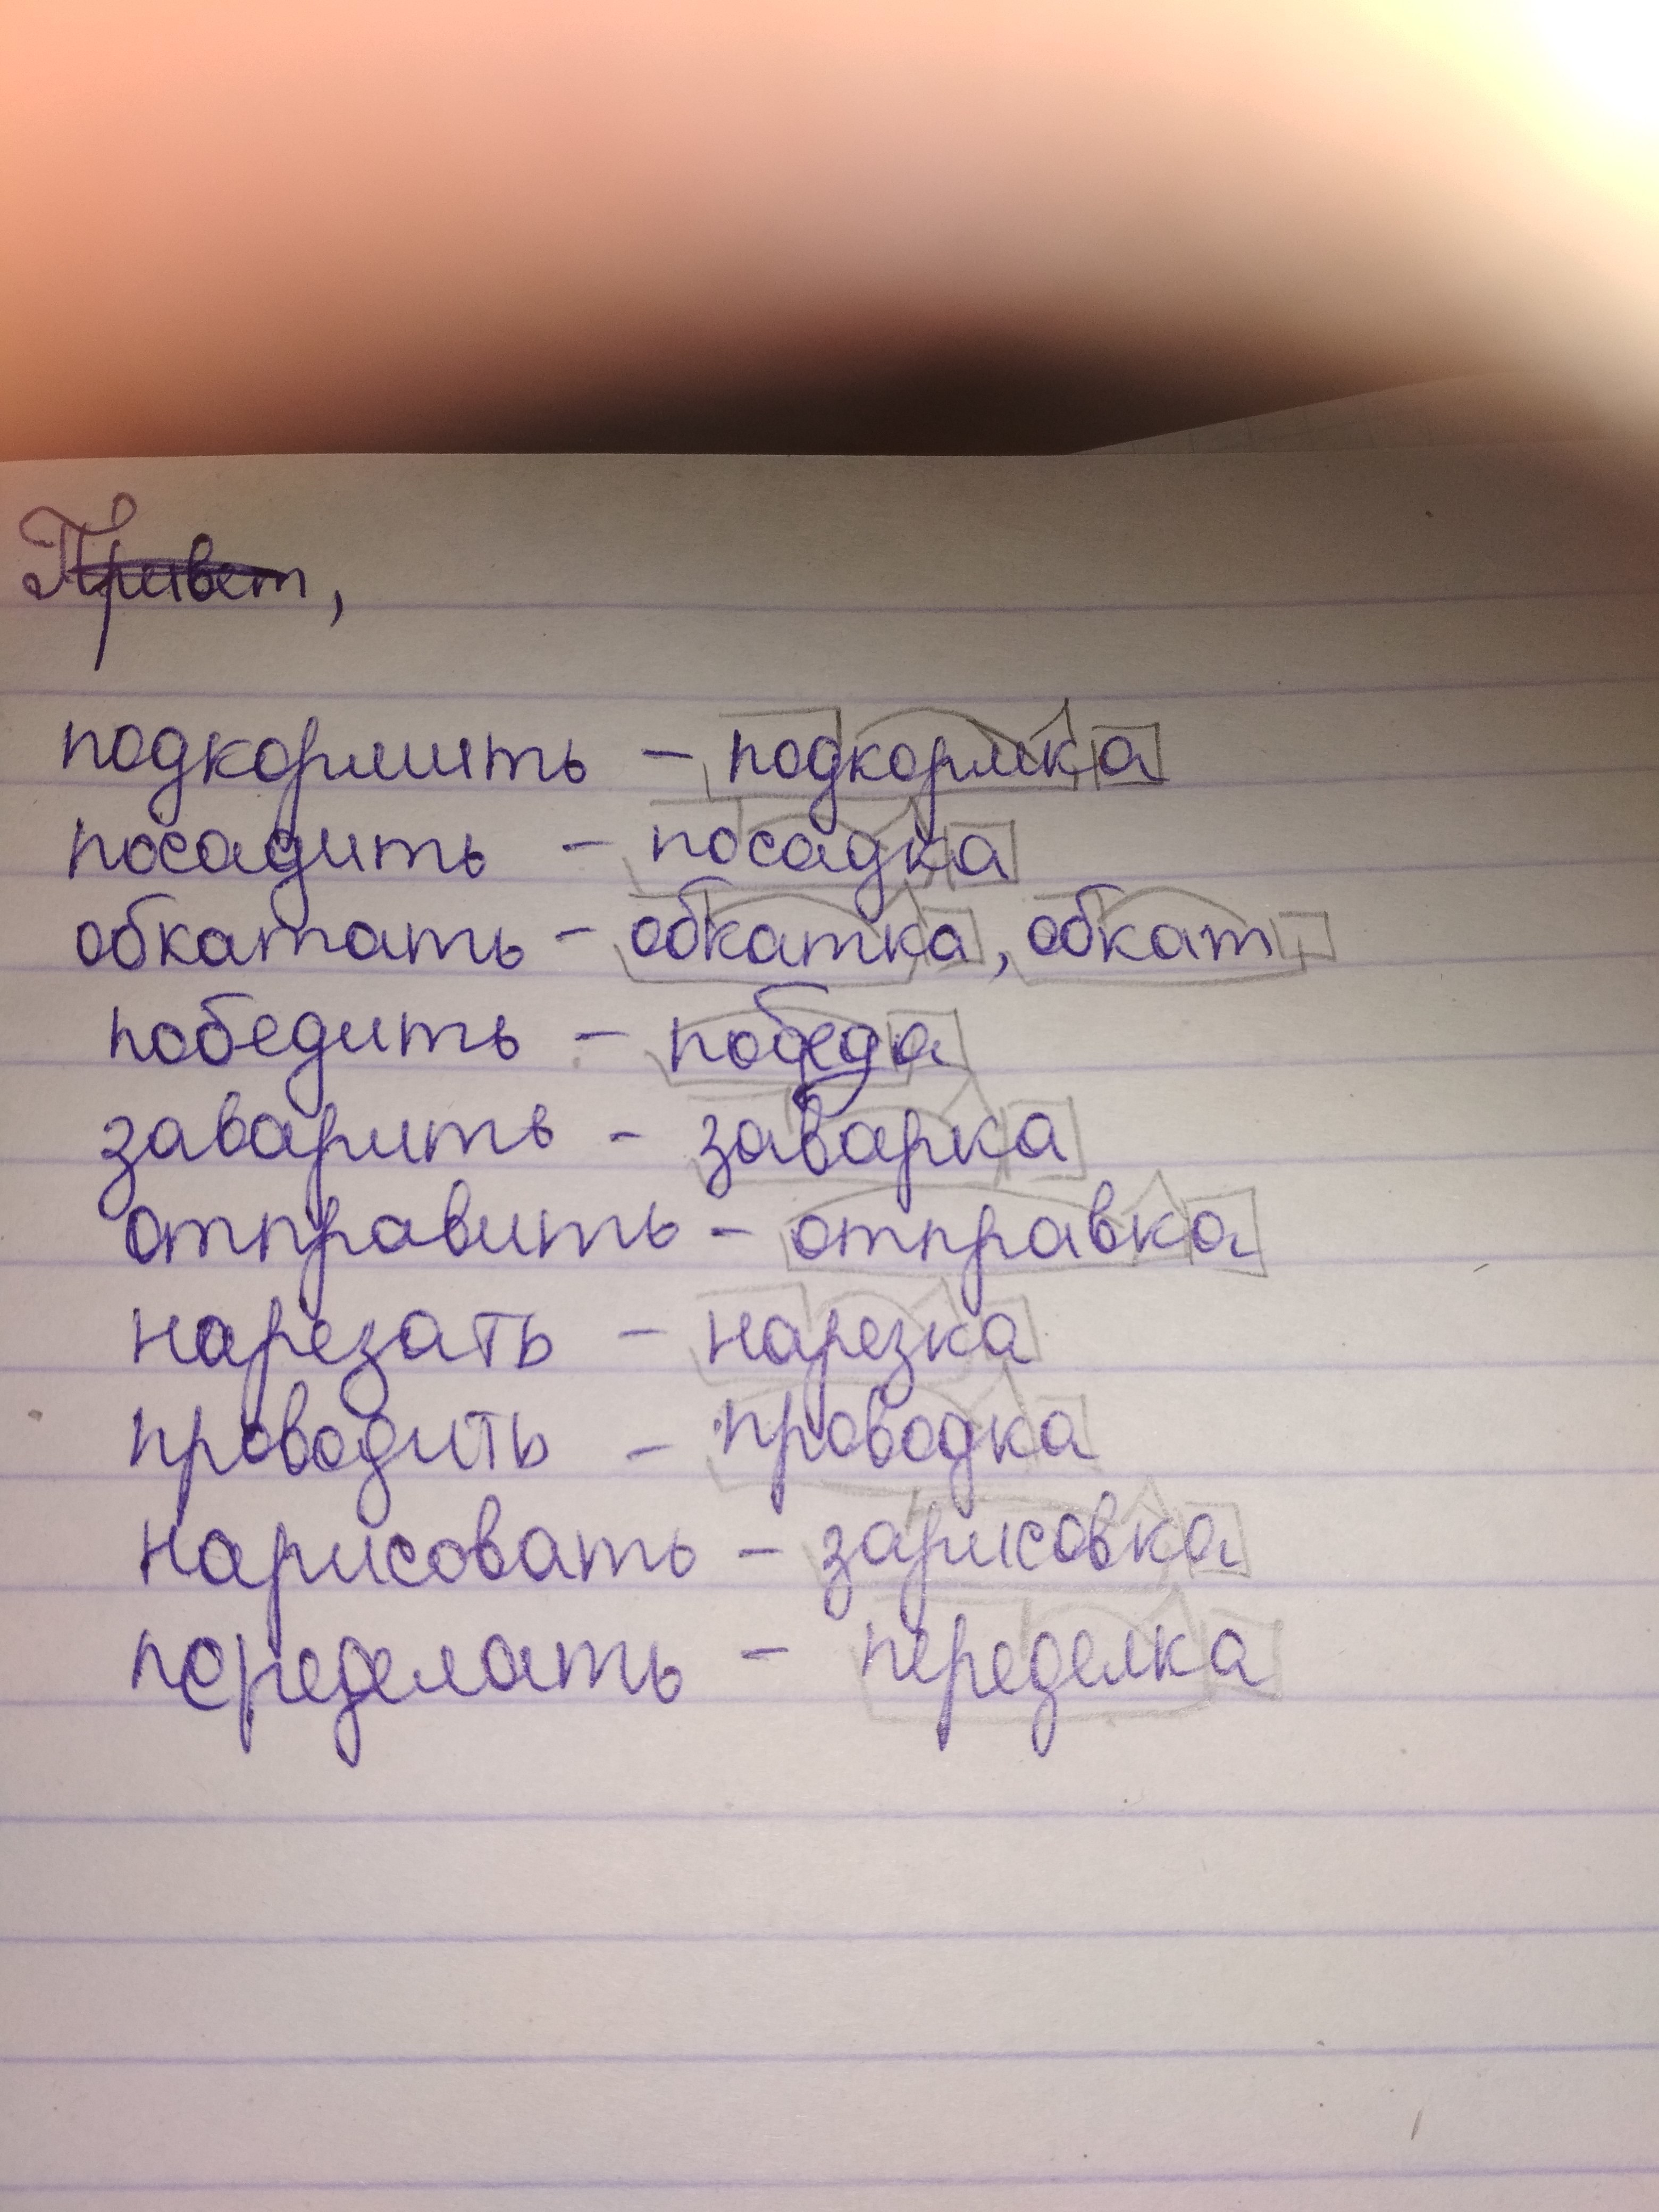 Привет,
подкормить - подкормка
посадить - посадка
обкатать - обкатка, обкат
победить - победа
заварить - заварка
отправить - отправка
нарезать - нарезка
проводить - проводка
нарисовать - зарисовка
переделать - переделка